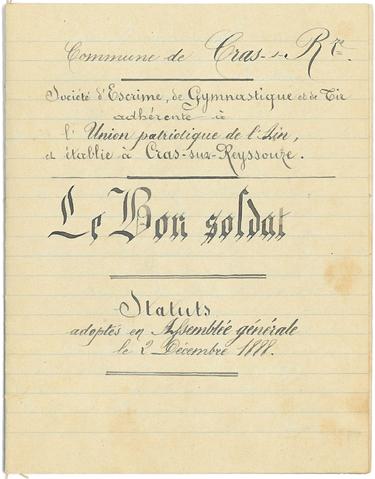 Commune de Cras-s-Rze.
Société d'Escrime, de Gymnastique et de Tir
adhérente à
l'Union patriotique de l'Ain,
et établie à Cras-sur-Reyssouze.
Le Bon soldat
Statuts
adoptés en Assemblée générale
le 2 Décembre 1888.